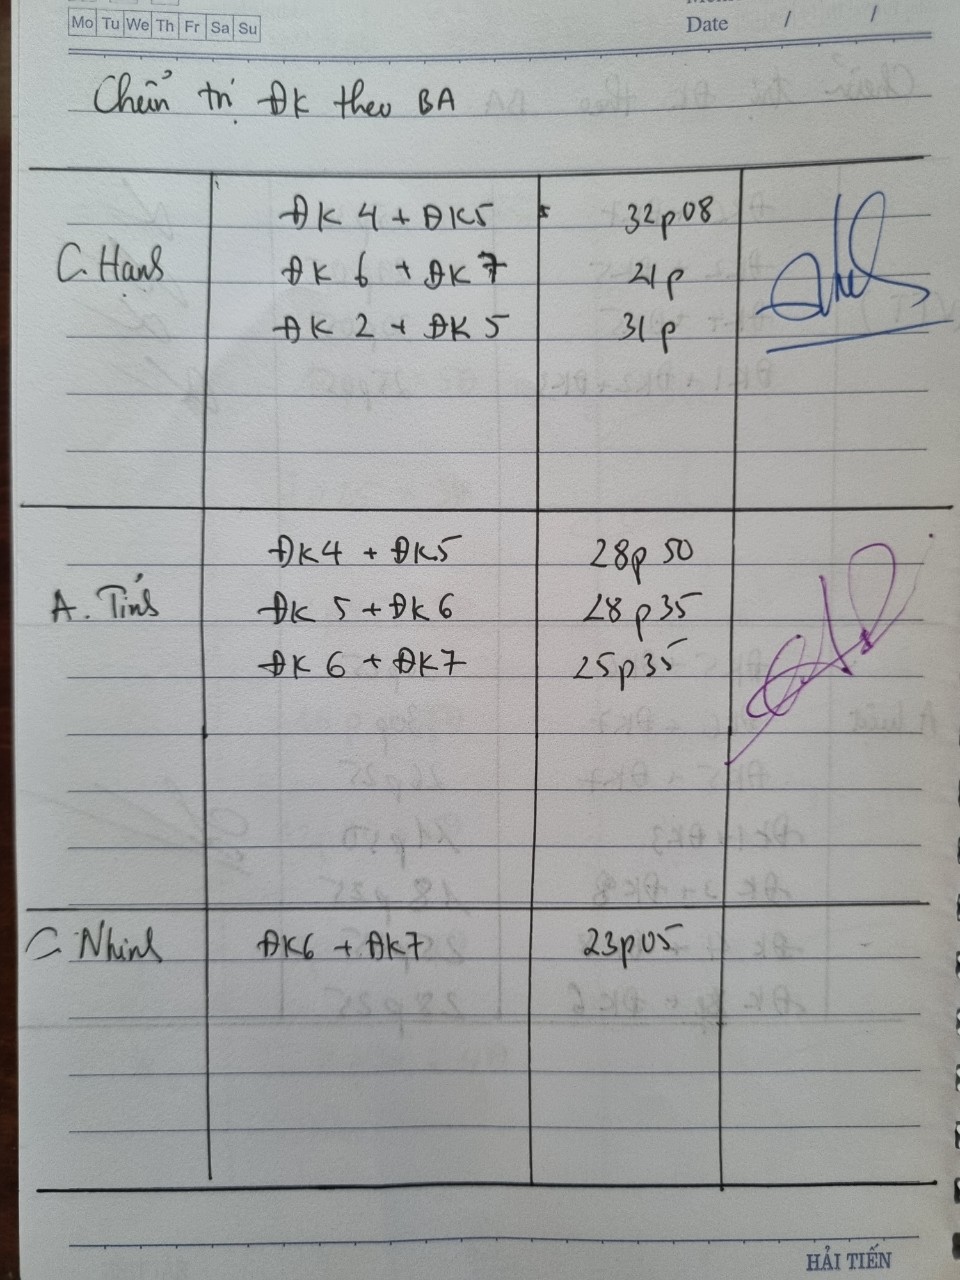 Mo Tu We Th Fr Sa Su
Date / /
Chẩn trị ĐK theo BA
ĐK 4 + ĐK5 32p08
C. Hạnh ĐK 6 + ĐK 7 21p
ĐK 2 + ĐK 5 31p
ĐK4 + ĐK5 28p 50
A. Tính ĐK 5 + ĐK 6 28p35
ĐK 6 + ĐK7 25p35
C Nhinh ĐK6 + ĐK7 23p05
HẢI TIẾN